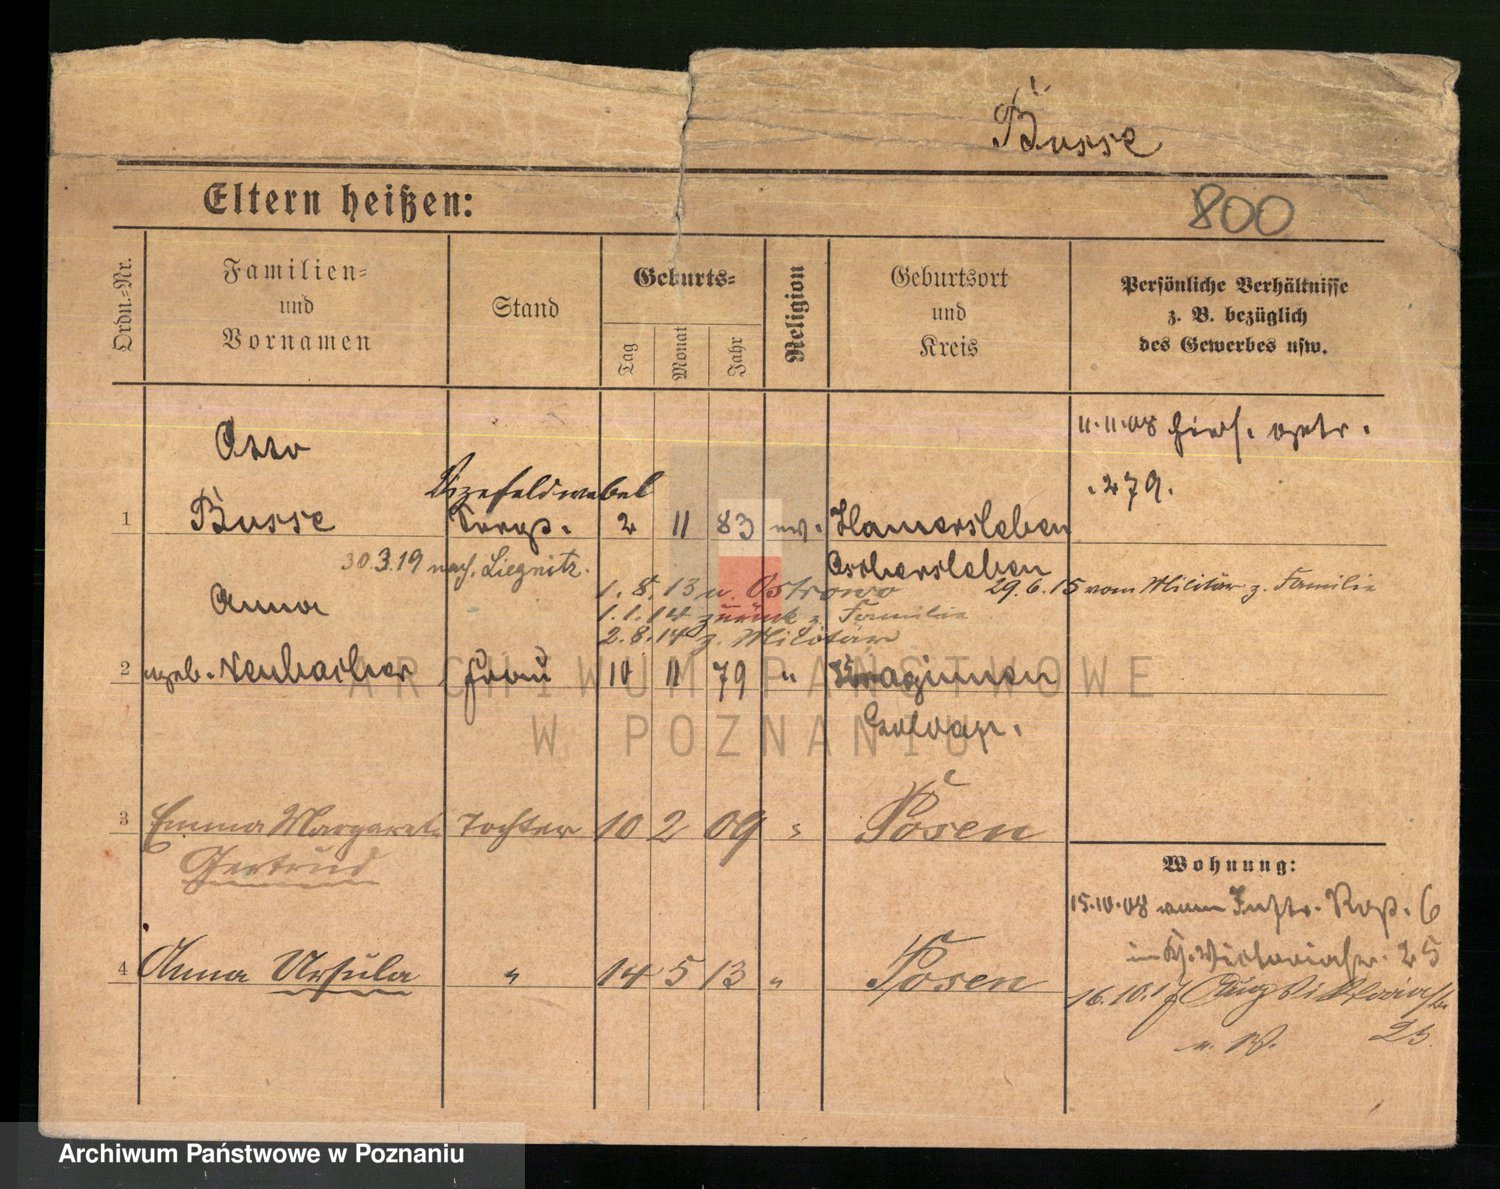 Busse
Eltern heißen:
800
Ordn.-Nr.
Familien-
und
Vornamen
Stand
Geburts-
Tag
Monat
Jahr
Religion
Geburtsort
und
Kreis
Persönliche Verhältnisse
z. B. bezüglich
des Gewerbes usw.
11.11.08
279.
Otto
Vizefeldwebel
1 Busse Serg. 2 11 83 ev. Hamersleben
30.3.19 nach Liegnitz.
Oschersleben
1.8.13 n. Ostrowo
29.6.15 vom Militär z. Familie
Anna
1.1.14 zurück z. Familie
2.8.14 z. Militär
2 geb. Neubacher Frau 10 11 79 "
Goldap.
3 Emma Margaret. Tochter 10 2 09 " Posen
Gertrud
Wohnung:
15.10.08 vom 6
4 Anna Ursula " 14 5 13 " Posen
25
16.10.17 Aug. Viktoriastr.
23.
ARCHIWUM PAŃSTWOWE
W POZNANIU
Archiwum Państwowe w Poznaniu